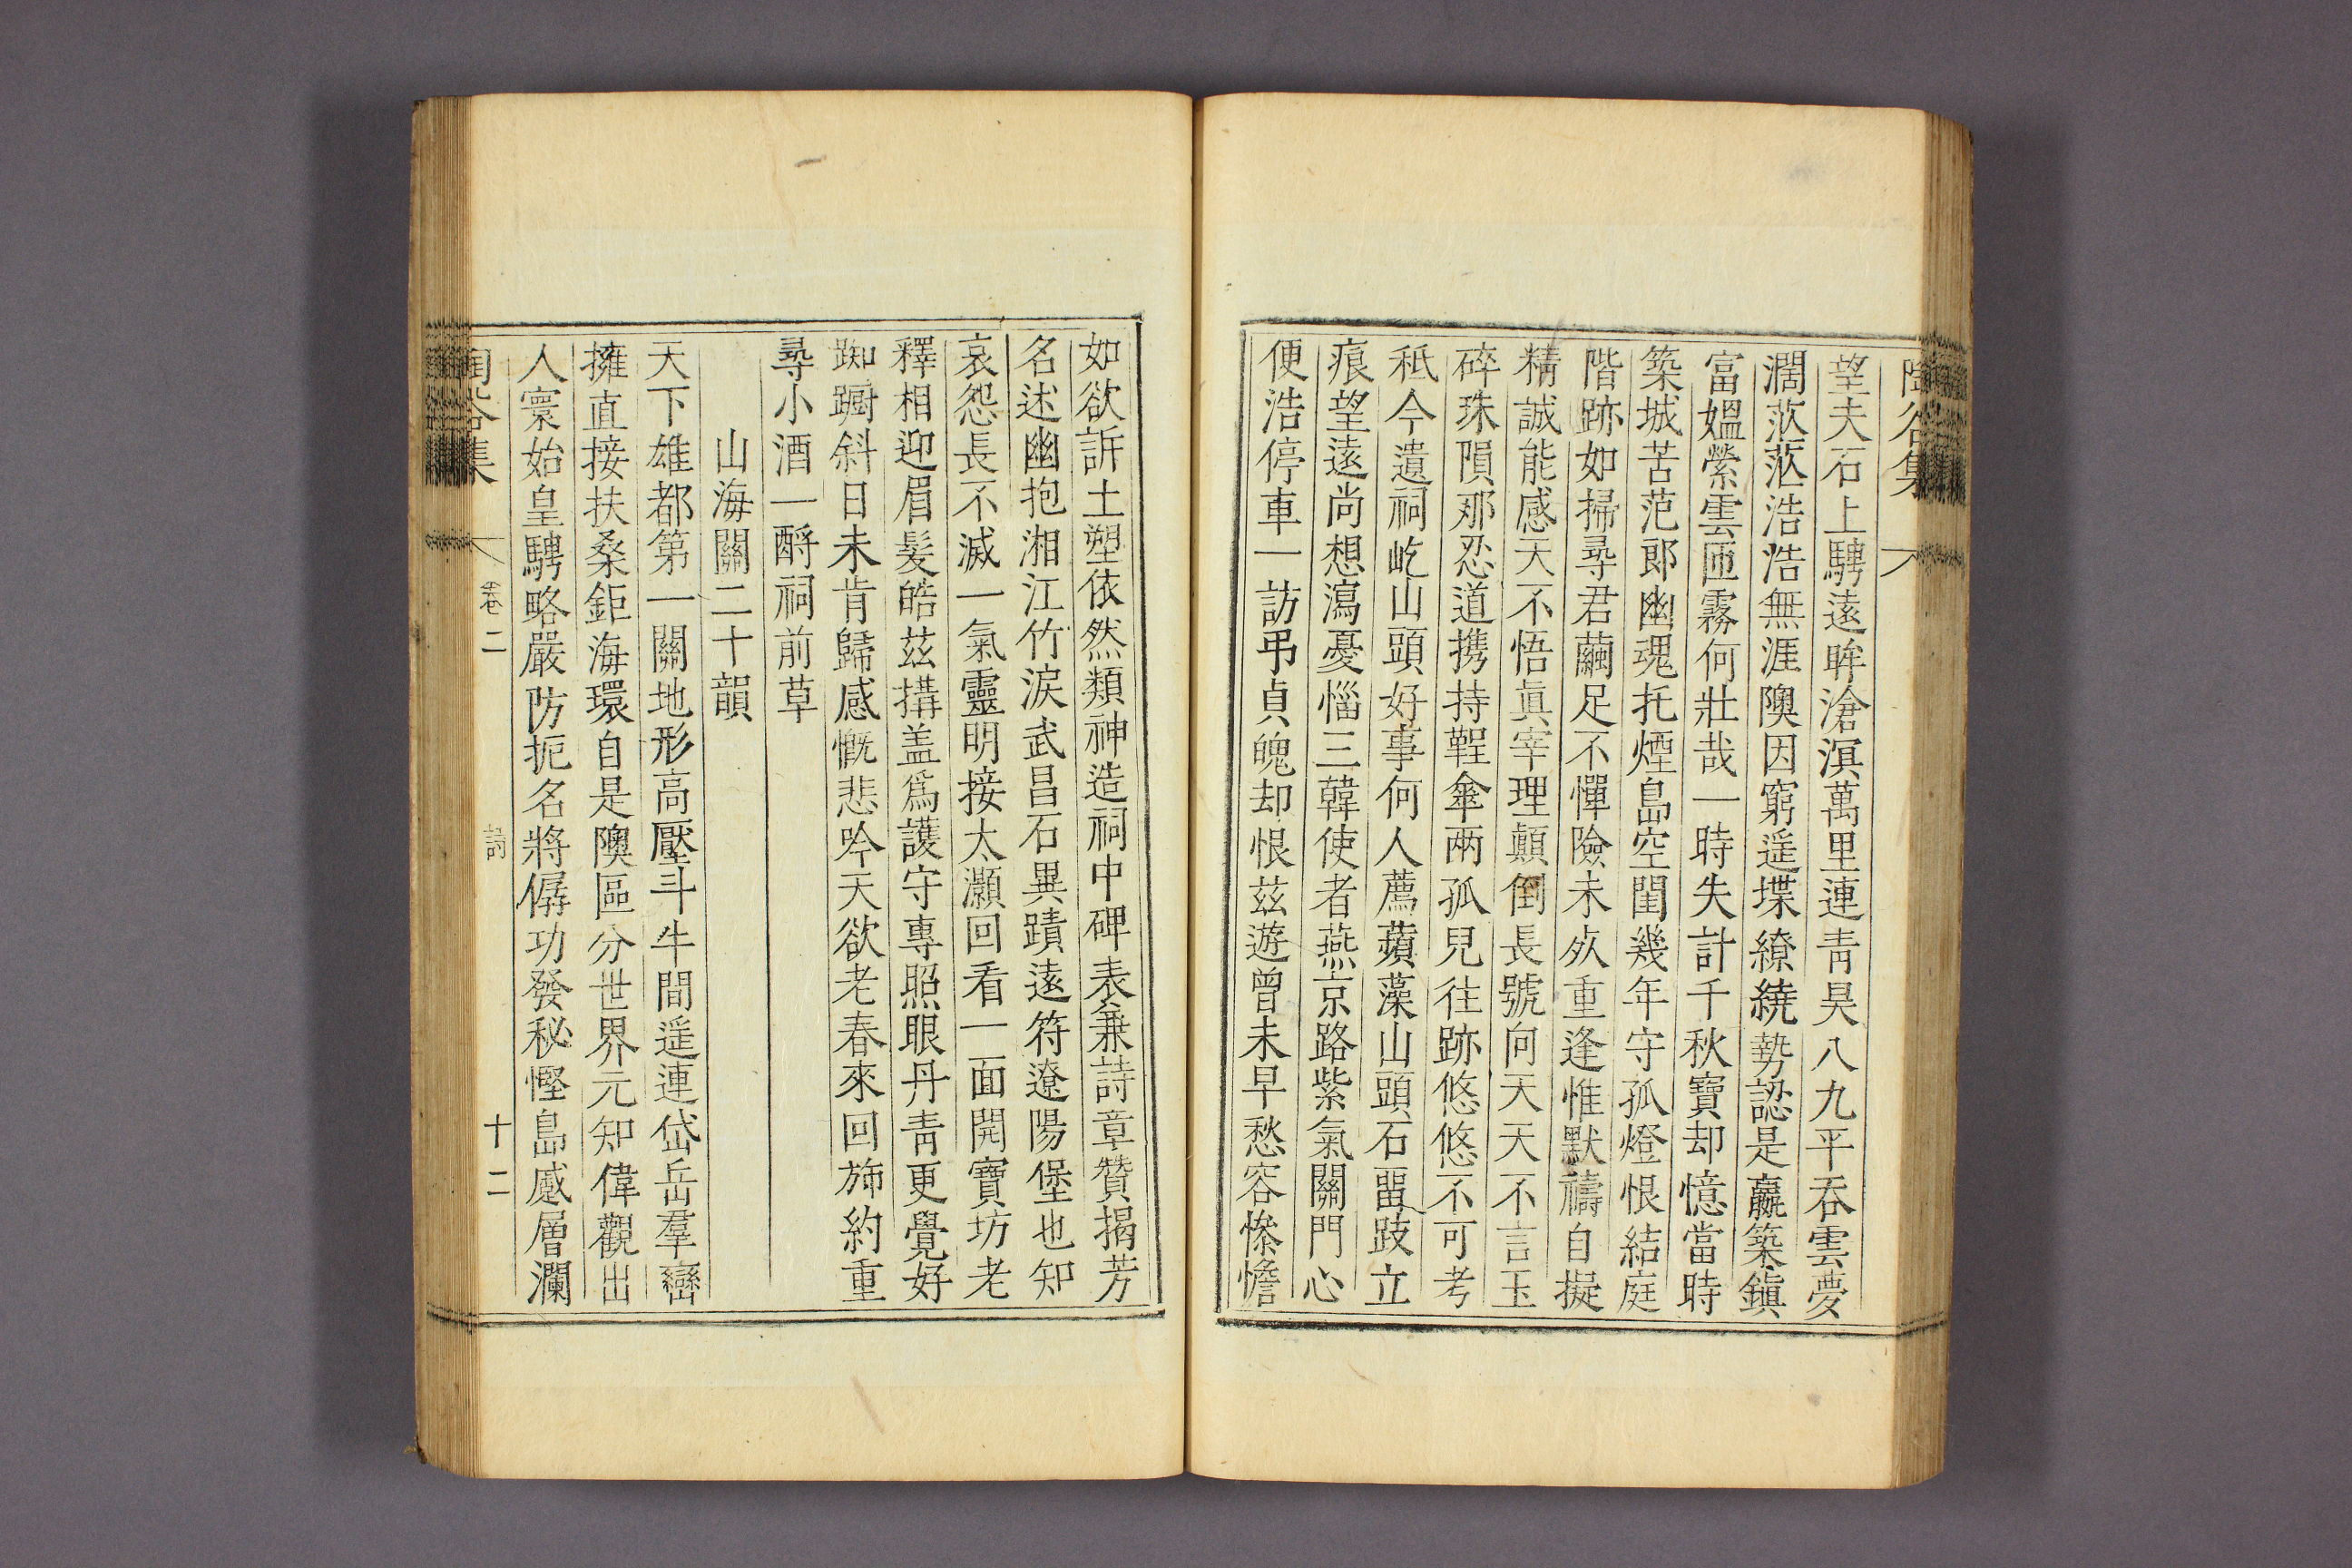 陶谷集
望夫石上騁遠眸滄溟萬里連靑昊八九平吞雲夢
濶茫茫浩浩無涯隩因窮遥堞繚繞勢認是嬴築鎭
富媼縈雲匝霧何壯哉一時失計千秋寶却憶當時
築城苦范郞幽魂托煙島空閨幾年守孤燈恨結庭
階跡如掃尋君繭足不憚險未死重逢惟默禱自擬
精誠能感天不悟眞宰理顚倒長號向天天不言玉
碎珠隕那忍道携持鞓傘兩孤兒往跡悠悠不可考
秪今遺祠屹山頭好事何人薦蘋藻山頭石畱跂立
痕望遠尙想瀉憂惱三韓使者燕京路紫氣關門心
便浩停車一訪弔貞魄却恨茲遊曾未早愁容慘憺
如欲訴土塑依然類神造祠中碑表兼詩章贊揭芳
名述幽抱湘江竹淚武昌石異蹟遠符遼陽堡也知
哀怨長不滅一氣靈明接太灝回看一面開寶坊老
釋相迎眉髮皓茲搆盖爲護守專照眼丹靑更覺好
踟躕斜日未肯歸感慨悲吟天欲老春來回斾約重
尋小酒一酹祠前草
山海關二十韻
天下雄都第一關地形高壓斗牛間遥連岱岳羣巒
擁直接扶桑鉅海環自是隩區分世界元知偉觀出
人寰始皇騁略嚴防扼名將僝功發秘慳島蹙層瀾
陶谷集 卷二 詩 十二